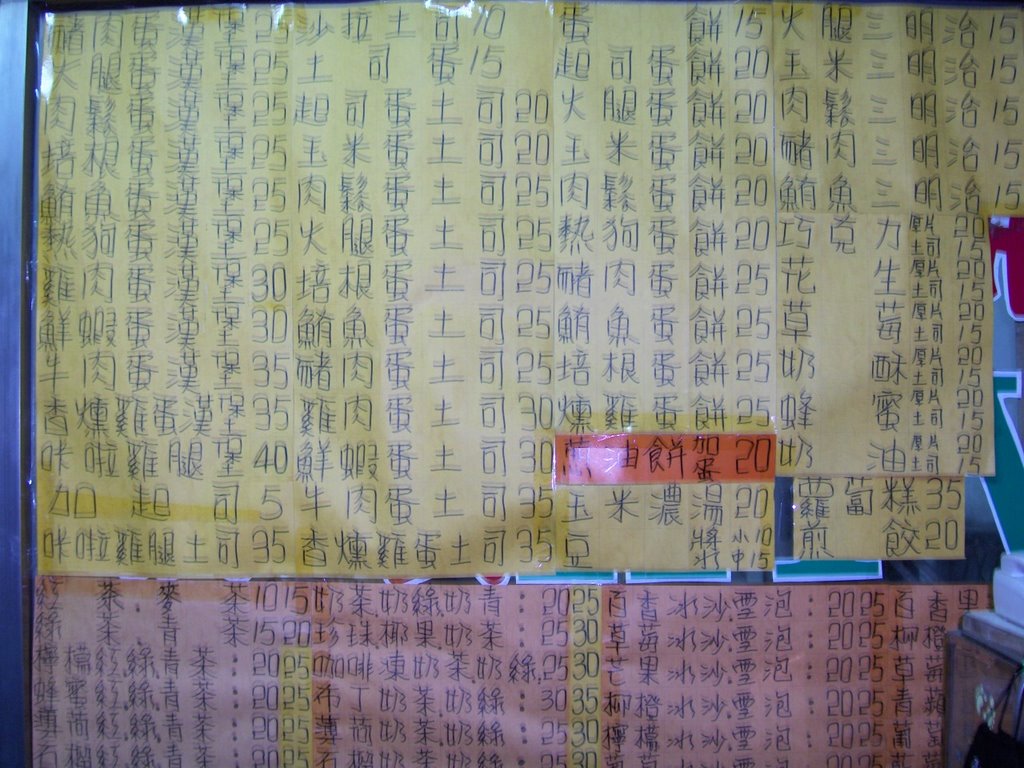 豬肉蛋漢堡25
火腿蛋漢堡25
肉鬆蛋漢堡25
培根蛋漢堡25
鮪魚蛋漢堡25
熱狗蛋漢堡25
雞肉蛋漢堡30
鮮蝦蛋漢堡30
牛肉蛋漢堡35
香燻雞蛋漢堡35
咔啦雞腿堡40
加起司5
咔啦雞腿土司35
沙拉土司10
土司蛋15
起司蛋土司20
玉米蛋土司20
肉鬆蛋土司25
火腿蛋土司25
培根蛋土司25
鮪魚蛋土司25
豬肉蛋土司25
雞肉蛋土司30
鮮蝦蛋土司30
牛肉蛋土司35
香燻雞蛋土司35
蛋餅15
起司蛋餅20
火腿蛋餅20
玉米蛋餅20
肉鬆蛋餅20
熱狗蛋餅20
豬肉蛋餅25
鮪魚蛋餅25
培根蛋餅25
燻雞蛋餅25
油餅加蛋20
玉米濃湯20
豆漿小10中15
火腿三明治15
玉米三明治15
肉鬆三明治15
豬肉三明治15
鮪魚三明治15
巧克力厚片20土司15
花生厚片20土司15
草莓厚片20土司15
奶酥厚片20土司15
蜂蜜厚片20土司15
奶油厚片20土司15
蘿蔔糕35
煎餃20
紅茶.麥茶1015
綠茶.青茶1520
檸檬紅.綠.青茶:2025
蜂蜜紅.綠.青茶:2025
薄荷紅.綠.青茶:2025
石榴紅.綠.青茶
奶茶.奶綠.奶青:2025
珍珠.椰果.奶茶:2530
咖啡凍奶茶.奶綠.2530
布丁奶茶.奶綠:3035
薄荷奶茶.奶綠:2530
石榴奶茶.奶綠
百香冰沙.雪泡:2025
草莓冰沙.雪泡:2025
芒果冰沙.雪泡:2025
柳橙冰沙.雪泡:2025
檸檬冰沙.雪泡:2025
百香果
柳橙
草莓
青蘋
葡萄